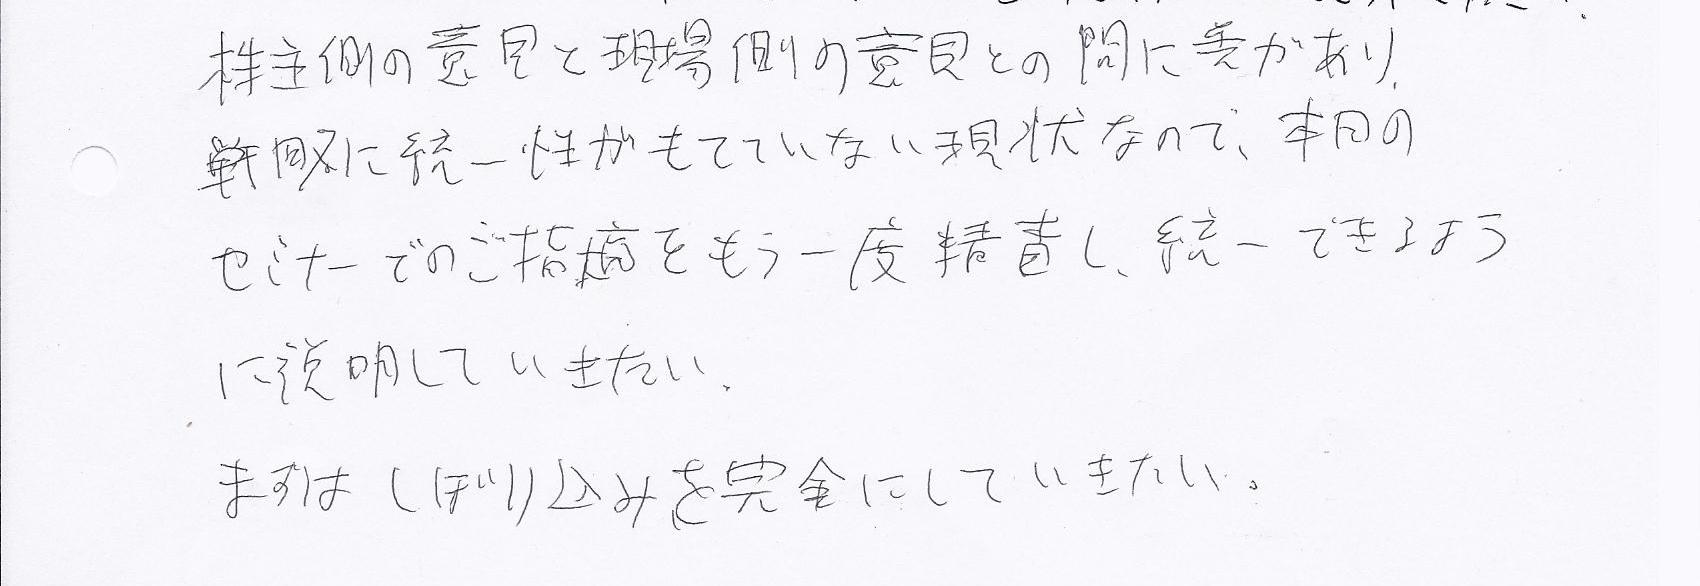 株主側の意見と現場側の意見との間に差があり、
戦略に統一性がもてていない現状なので、本日の
セミナーでのご指摘をもう一度精査し、統一できるよう
に説明していきたい。
まずはしぼり込みを完全にしていきたい。